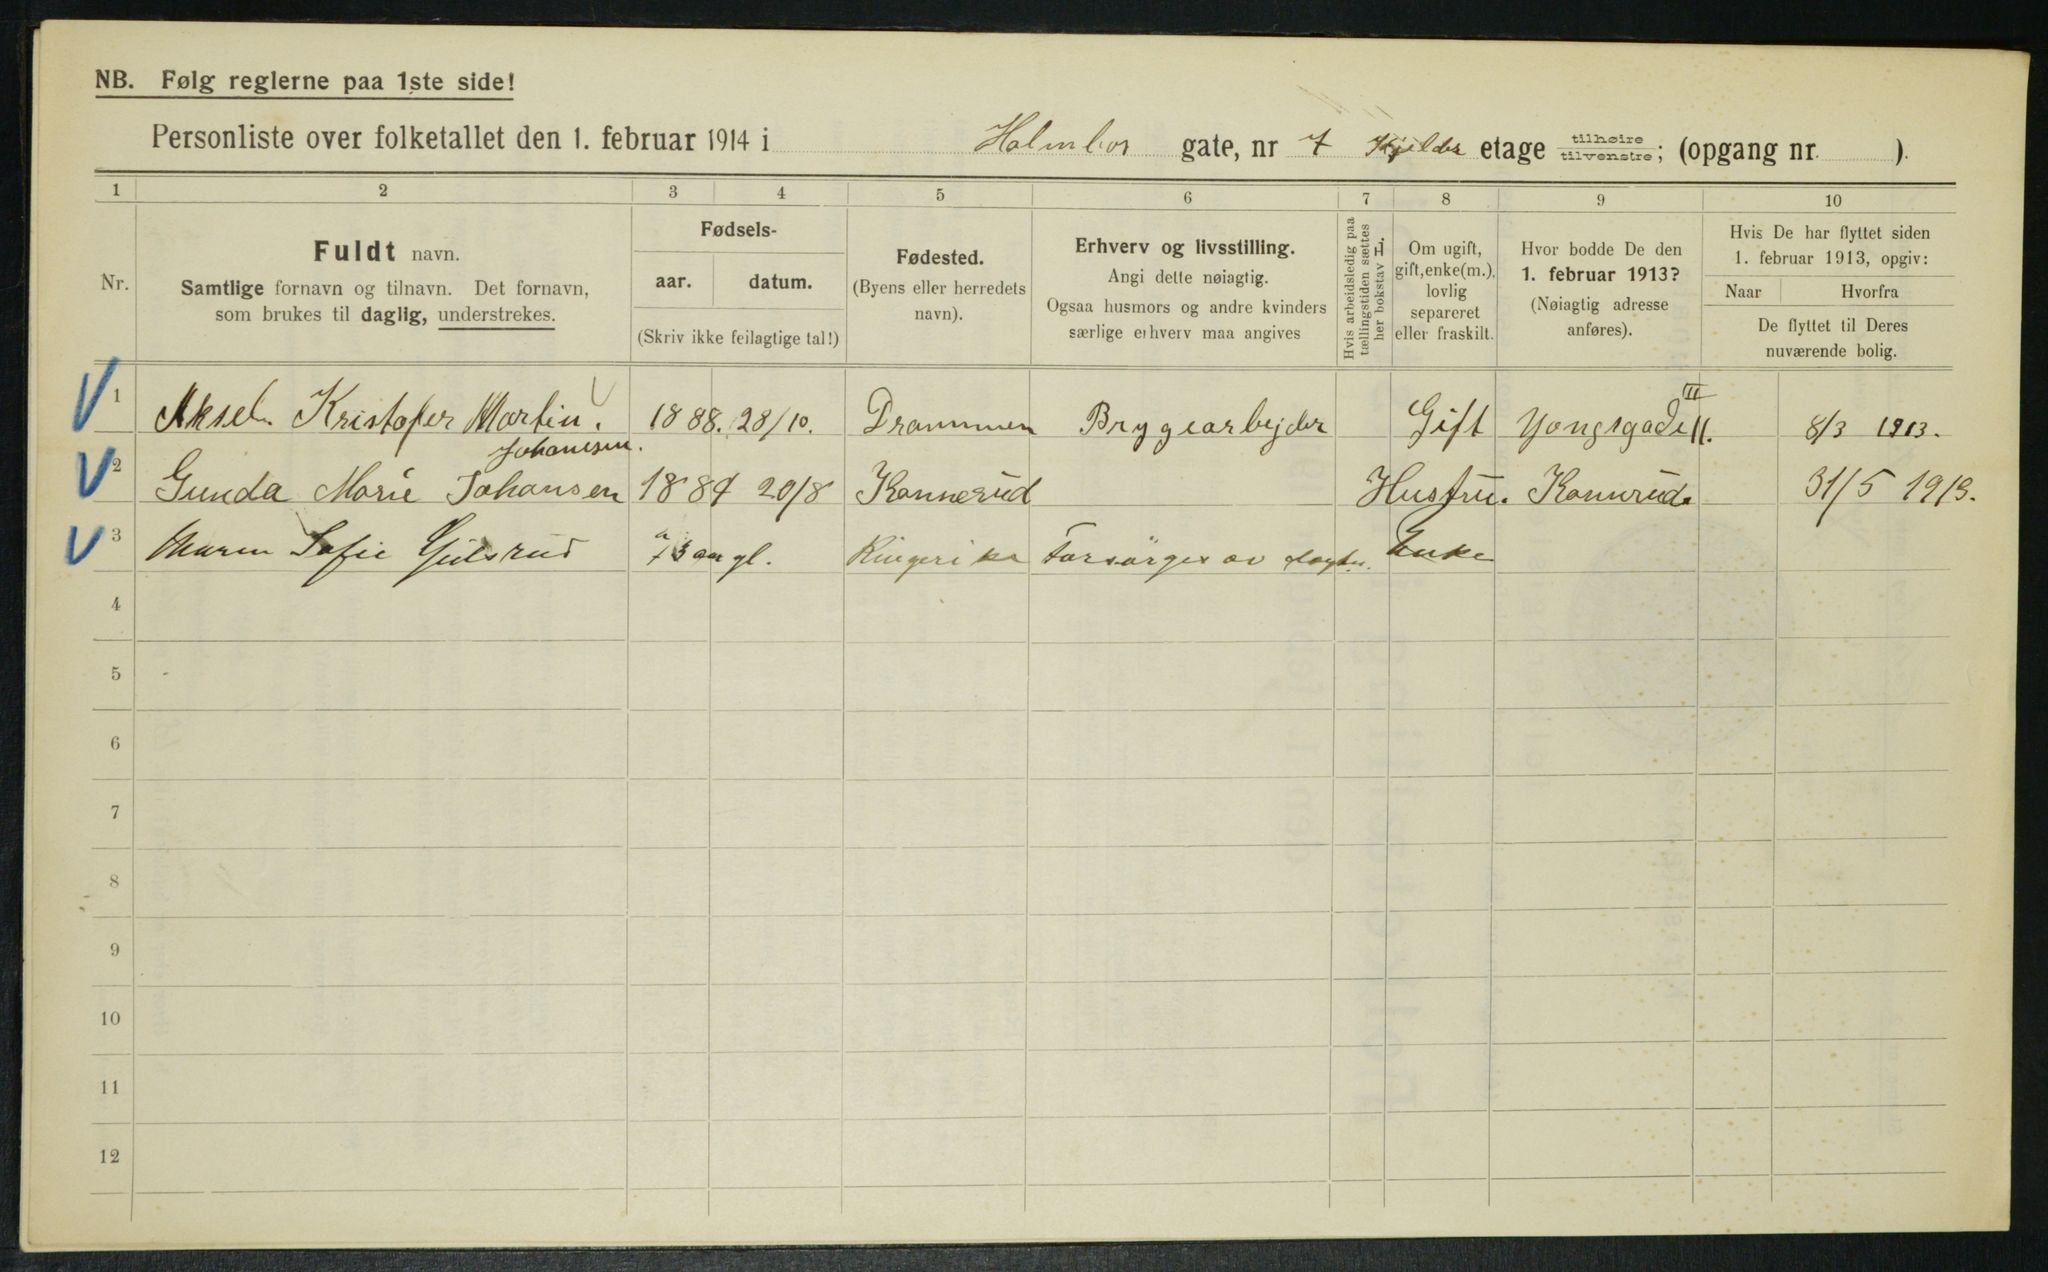 NB. Følg reglerne paa 1ste side!
Personliste over folketallet den 1. februar 1914 i Holmbos gate, nr 7 Kjelder etage tilhøire tilvenstre; (opgang nr. ).
1 2 3 4 5 6 7 8 9 10
Nr.
Fuldt navn.
Samtlige fornavn og tilnavn. Det fornavn,
som brukes til daglig, understrekes.
Fødsels-
aar. datum.
(Skriv ikke feilagtige tal!)
Fødested.
(Byens eller herredets
navn).
Erhverv og livsstilling.
Angi dette nøiagtig.
Ogsaa husmors og andre kvinders
særlige erhverv maa angives
Hvis arbeidsledig paa
tællingstiden sættes
her bokstav L.
Om ugift,
gift, enke(m.),
lovlig
separeret
eller fraskilt.
Hvor bodde De den
1. februar 1913?
(Nøiagtig adresse
anføres).
Hvis De har flyttet siden
1. februar 1913, opgiv:
Naar Hvorfra
De flyttet til Deres
nuværende bolig.
1 Aksel Kristofer Martin. 1888. 28/10. Drammen Brygearbejder Gift Yongsgade 11. III 8/3 1913.
Johansen.
2 Gunda Marie Johansen 1884 20/8 Konnerud Hustru. Konnerud. 31/5 1913.
3 Maren Sofie Gulsrud 73 aar gl. Ringerike Forsørges av dagter. Enke
4
5
6
7
8
9
10
11
12